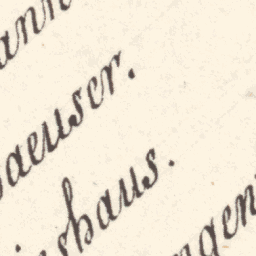 ann
aeuser.
shaus.
ngen